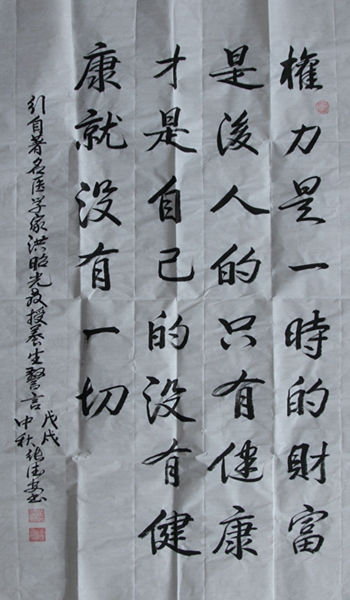 權力是一時的財富
是後人的只有健康
才是自己的没有健
康就没有一切
引自著名医学家洪昭光教授养生警言
戊戌
中秋